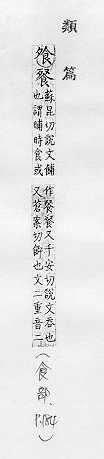 類篇
飱餐蘇昆切說文餔
也謂晡時食或
作餐餐又千安切說文吞也
又蒼案切餅也文二重音二
(食部. P.184)